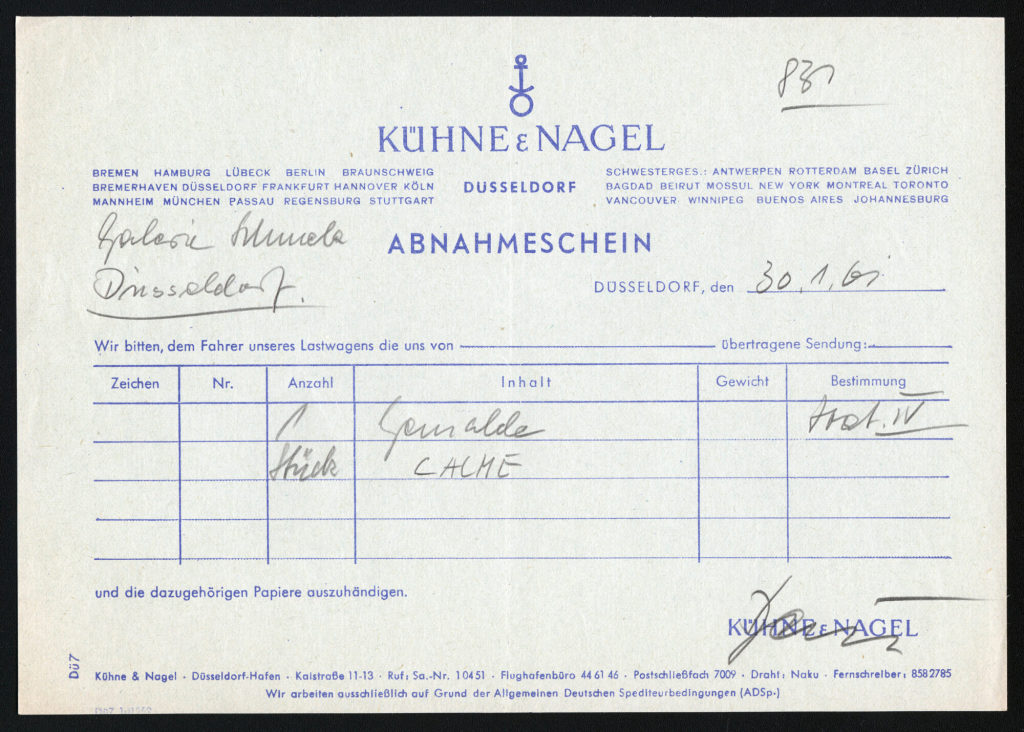 831
KÜHNE & NAGEL
BREMEN HAMBURG LÜBECK BERLIN BRAUNSCHWEIG
BREMERHAVEN DÜSSELDORF FRANKFURT HANNOVER KÖLN
MANNHEIM MÜNCHEN PASSAU REGENSBURG STUTTGART
DÜSSELDORF
SCHWESTERGES.: ANTWERPEN ROTTERDAM BASEL ZÜRICH
BAGDAD BEIRUT MOSSUL NEW YORK MONTREAL TORONTO
VANCOUVER WINNIPEG BUENOS AIRES JOHANNESBURG
Galerie Schmela
Düsseldorf.
ABNAHMESCHEIN
DÜSSELDORF, den 30.1.61
Wir bitten, dem Fahrer unseres Lastwagens die uns von übertragene Sendung:
Zeichen Nr. Anzahl Inhalt Gewicht Bestimmung
1 Gemälde IV
Stück
und die dazugehörigen Papiere auszuhändigen.
KÜHNE & NAGEL
Dü7
Kühne & Nagel · Düsseldorf-Hafen · Kaistraße 11-13 · Ruf: Sa.-Nr. 10451 · Flughafenbüro 44 61 46 · Postschließfach 7009 · Draht: Naku · Fernschreiber: 8582785
Wir arbeiten ausschließlich auf Grund der Allgemeinen Deutschen Spediteurbedingungen (ADSp-)